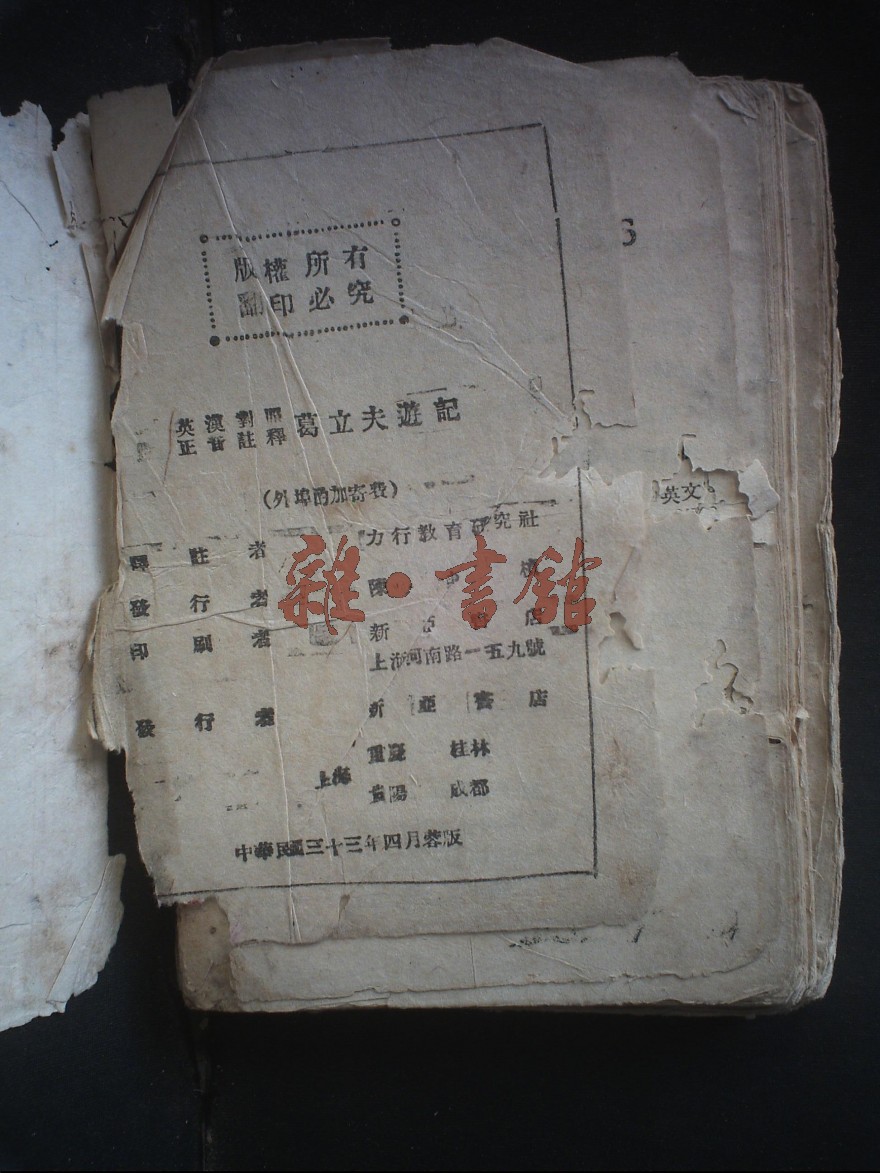 版權所有
翻印必究
英漢對照
正音註釋
葛立夫遊記
(外埠酌加寄費)
英文
釋註者 力行教育研究社
發行者 陳
印刷者 新亞書店
上海河南路一五九號
發行者 新亞書店
重慶 桂林
上海
貴陽 成都
中華民國三十三年四月蓉版
6
雜·書館